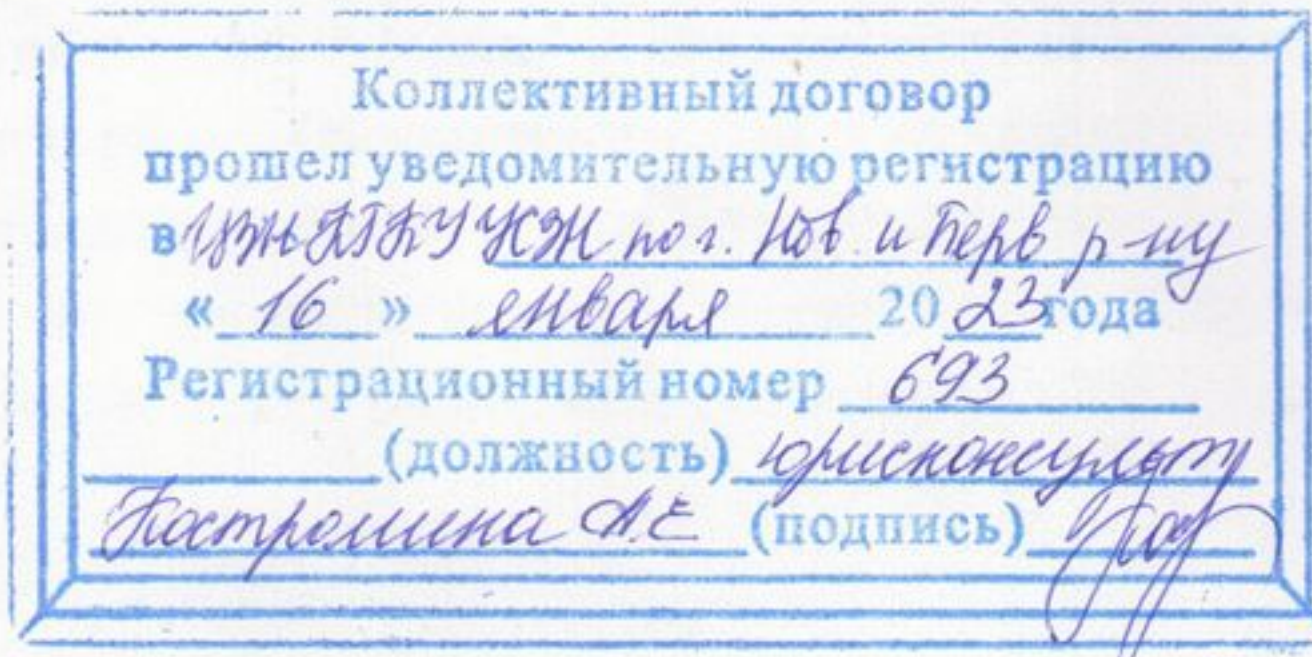 Коллективный договор
прошел уведомительную регистрацию
в ЦЗН КГКУ УСЗН по г. Нов. и Перв р-ну
« 16 » января 2023 года
Регистрационный номер 693
(должность) юрисконсульт
Костромина А.Е (подпись)